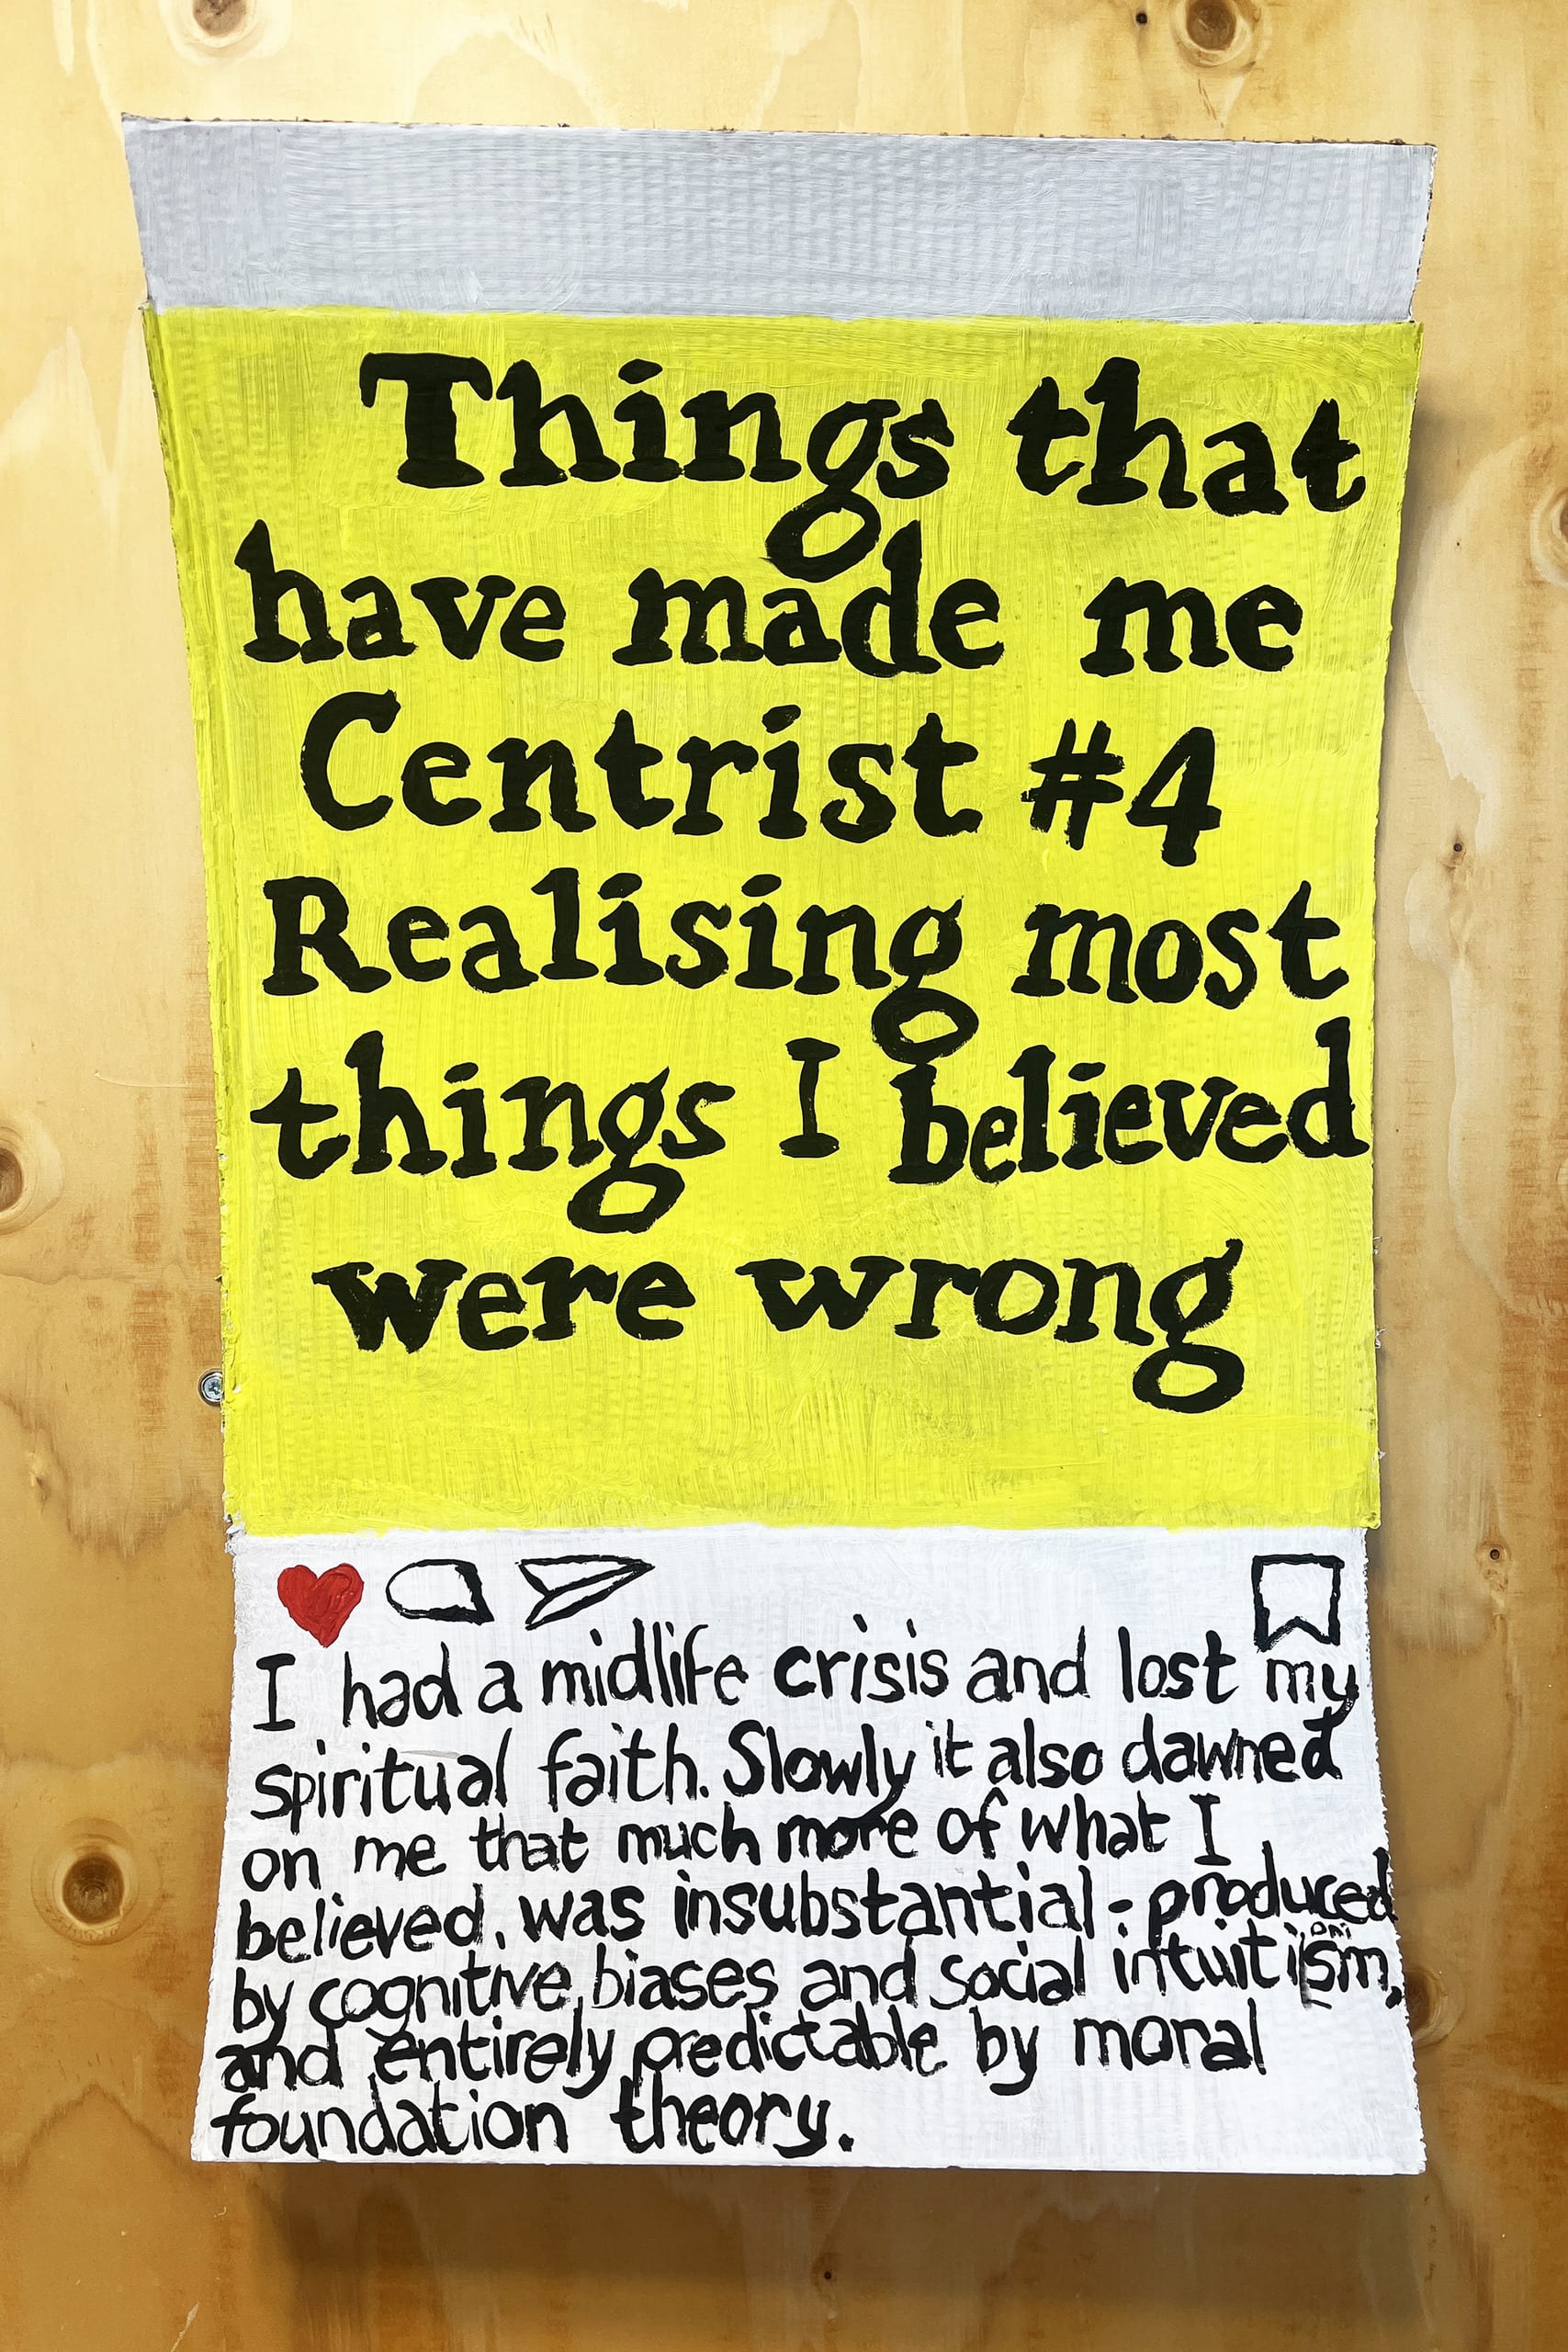 Things that
have made me
Centrist #4
Realising most
things I believed
were wrong
I had a midlife crisis and lost my
spiritual faith. Slowly it also dawned
on me that much more of what I
believed, was insubstantial - produced
by cognitive biases and social intuitionism,
and entirely predictable by moral
foundation theory.